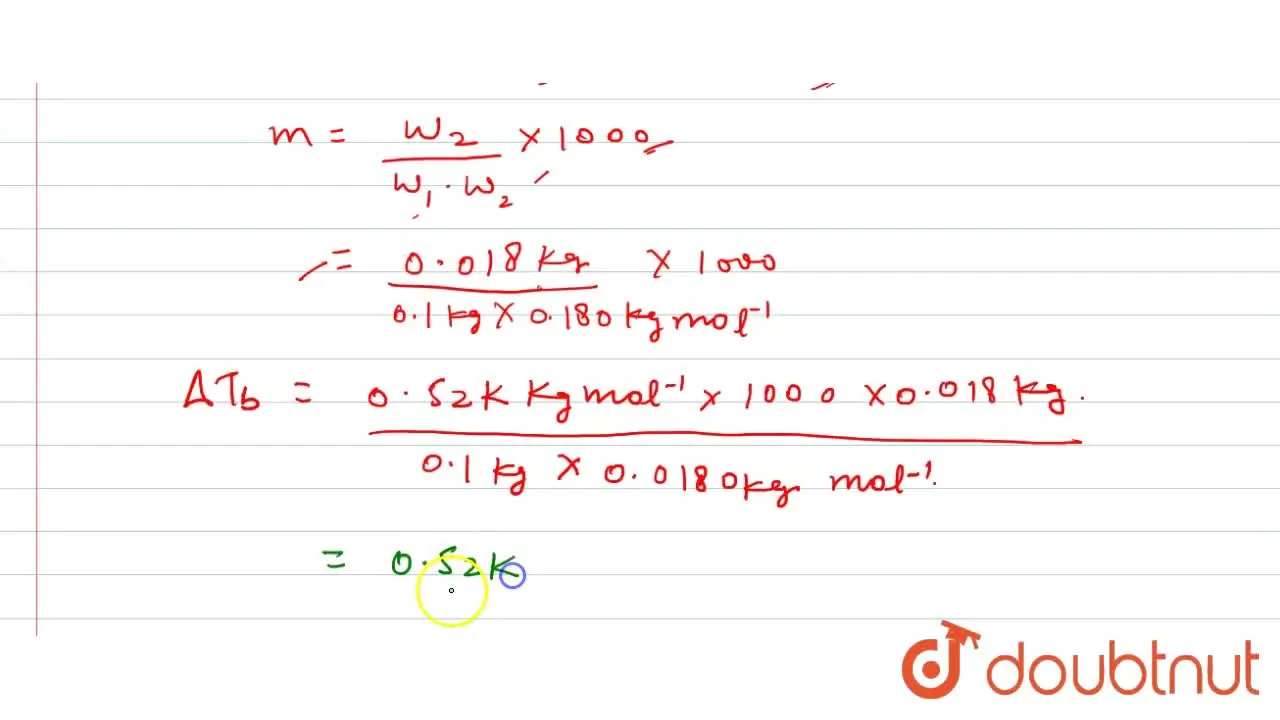 m = W₂ × 1000
W₁ · W₂
= 0.018 kg × 1000
0.1 kg × 0.180 kg mol⁻¹
ΔTb = 0.52 K Kg mol⁻¹ × 1000 × 0.018 kg.
0.1 kg × 0.0180 kg mol⁻¹.
= 0.52 K
doubtnut